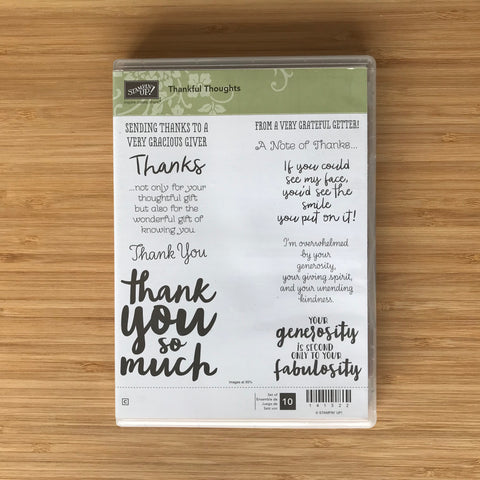 STAMPIN' UP!
Thankful Thoughts
SENDING THANKS TO A
VERY GRACIOUS GIVER
Thanks
...not only for your
thoughtful gift
but also for the
wonderful gift of
knowing you.
Thank You
thank
you
so
much
FROM A VERY GRATEFUL GETTER!
A Note of Thanks...
If you could
see my face,
you'd see the
smile
you put on it!
I'm overwhelmed
by your
generosity,
your giving spirit,
and your unending
kindness.
YOUR
generosity
IS SECOND
ONLY TO YOUR
fabulosity
Images at 60%
C
Set of
Ensemble de
Juego de
Set von
10
141322
© STAMPIN' UP!